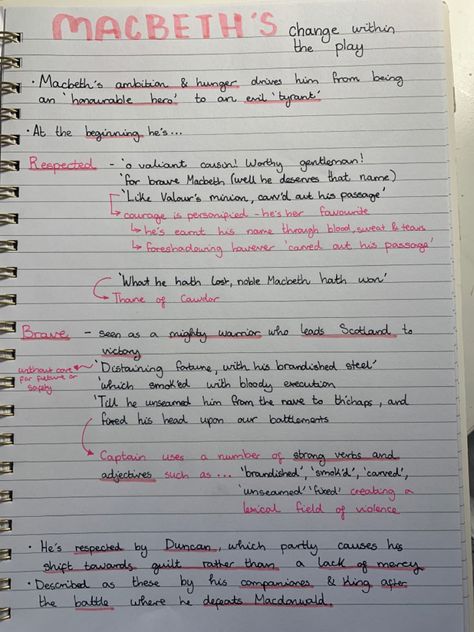 MACBETH'S change within
the play
· Macbeth's ambition & hunger drives him from being
an 'honourable hero' to an evil 'tyrant'
· At the beginning he's...
Respected - 'o valiant cousin! Worthy gentleman!
'for brave Macbeth (well he deserves that name)
'Like Valour's minion, carv'd out his passage'
courage is personified - he's her favourite
he's earnt his name through blood, sweat & tears
foreshadowing however 'carved out his passage'
'What he hath lost, noble Macbeth hath won'
Thane of Cawdor
Brave - seen as a mighty warrior who leads Scotland to
victory
without care
for future or
safety
'Distaining fortune, with his brandished steel'
'which smok'ed with bloody execution
'Till he unseamed him from the nave to th'chaps, and
fixed his head upon our battlements
Captain uses a number of strong verbs and
adjectives such as ... 'brandished', 'smok'd', 'carved',
'unseamed' 'fixed' creating a
lexical field of violence
· He's respected by Duncan, which partly causes his
shift towards guilt rather than a lack of mercy
· Described as these by his companions & King after
the battle where he defeats Macdonwald.